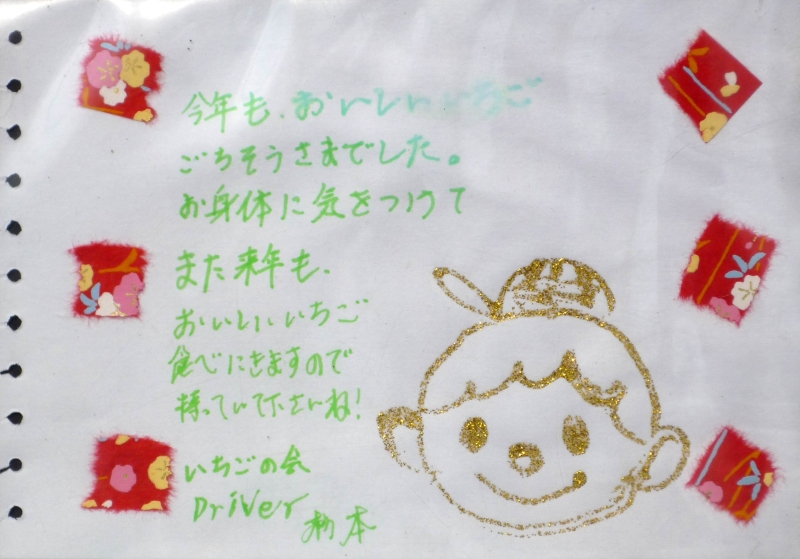 今年も、おいしいいちご
ごちそうさまでした。
お身体に気をつけて
また来年も、
おいしいいちご
食べにきますので
待っていて下さいね!
いちごの会
Driver 柳本